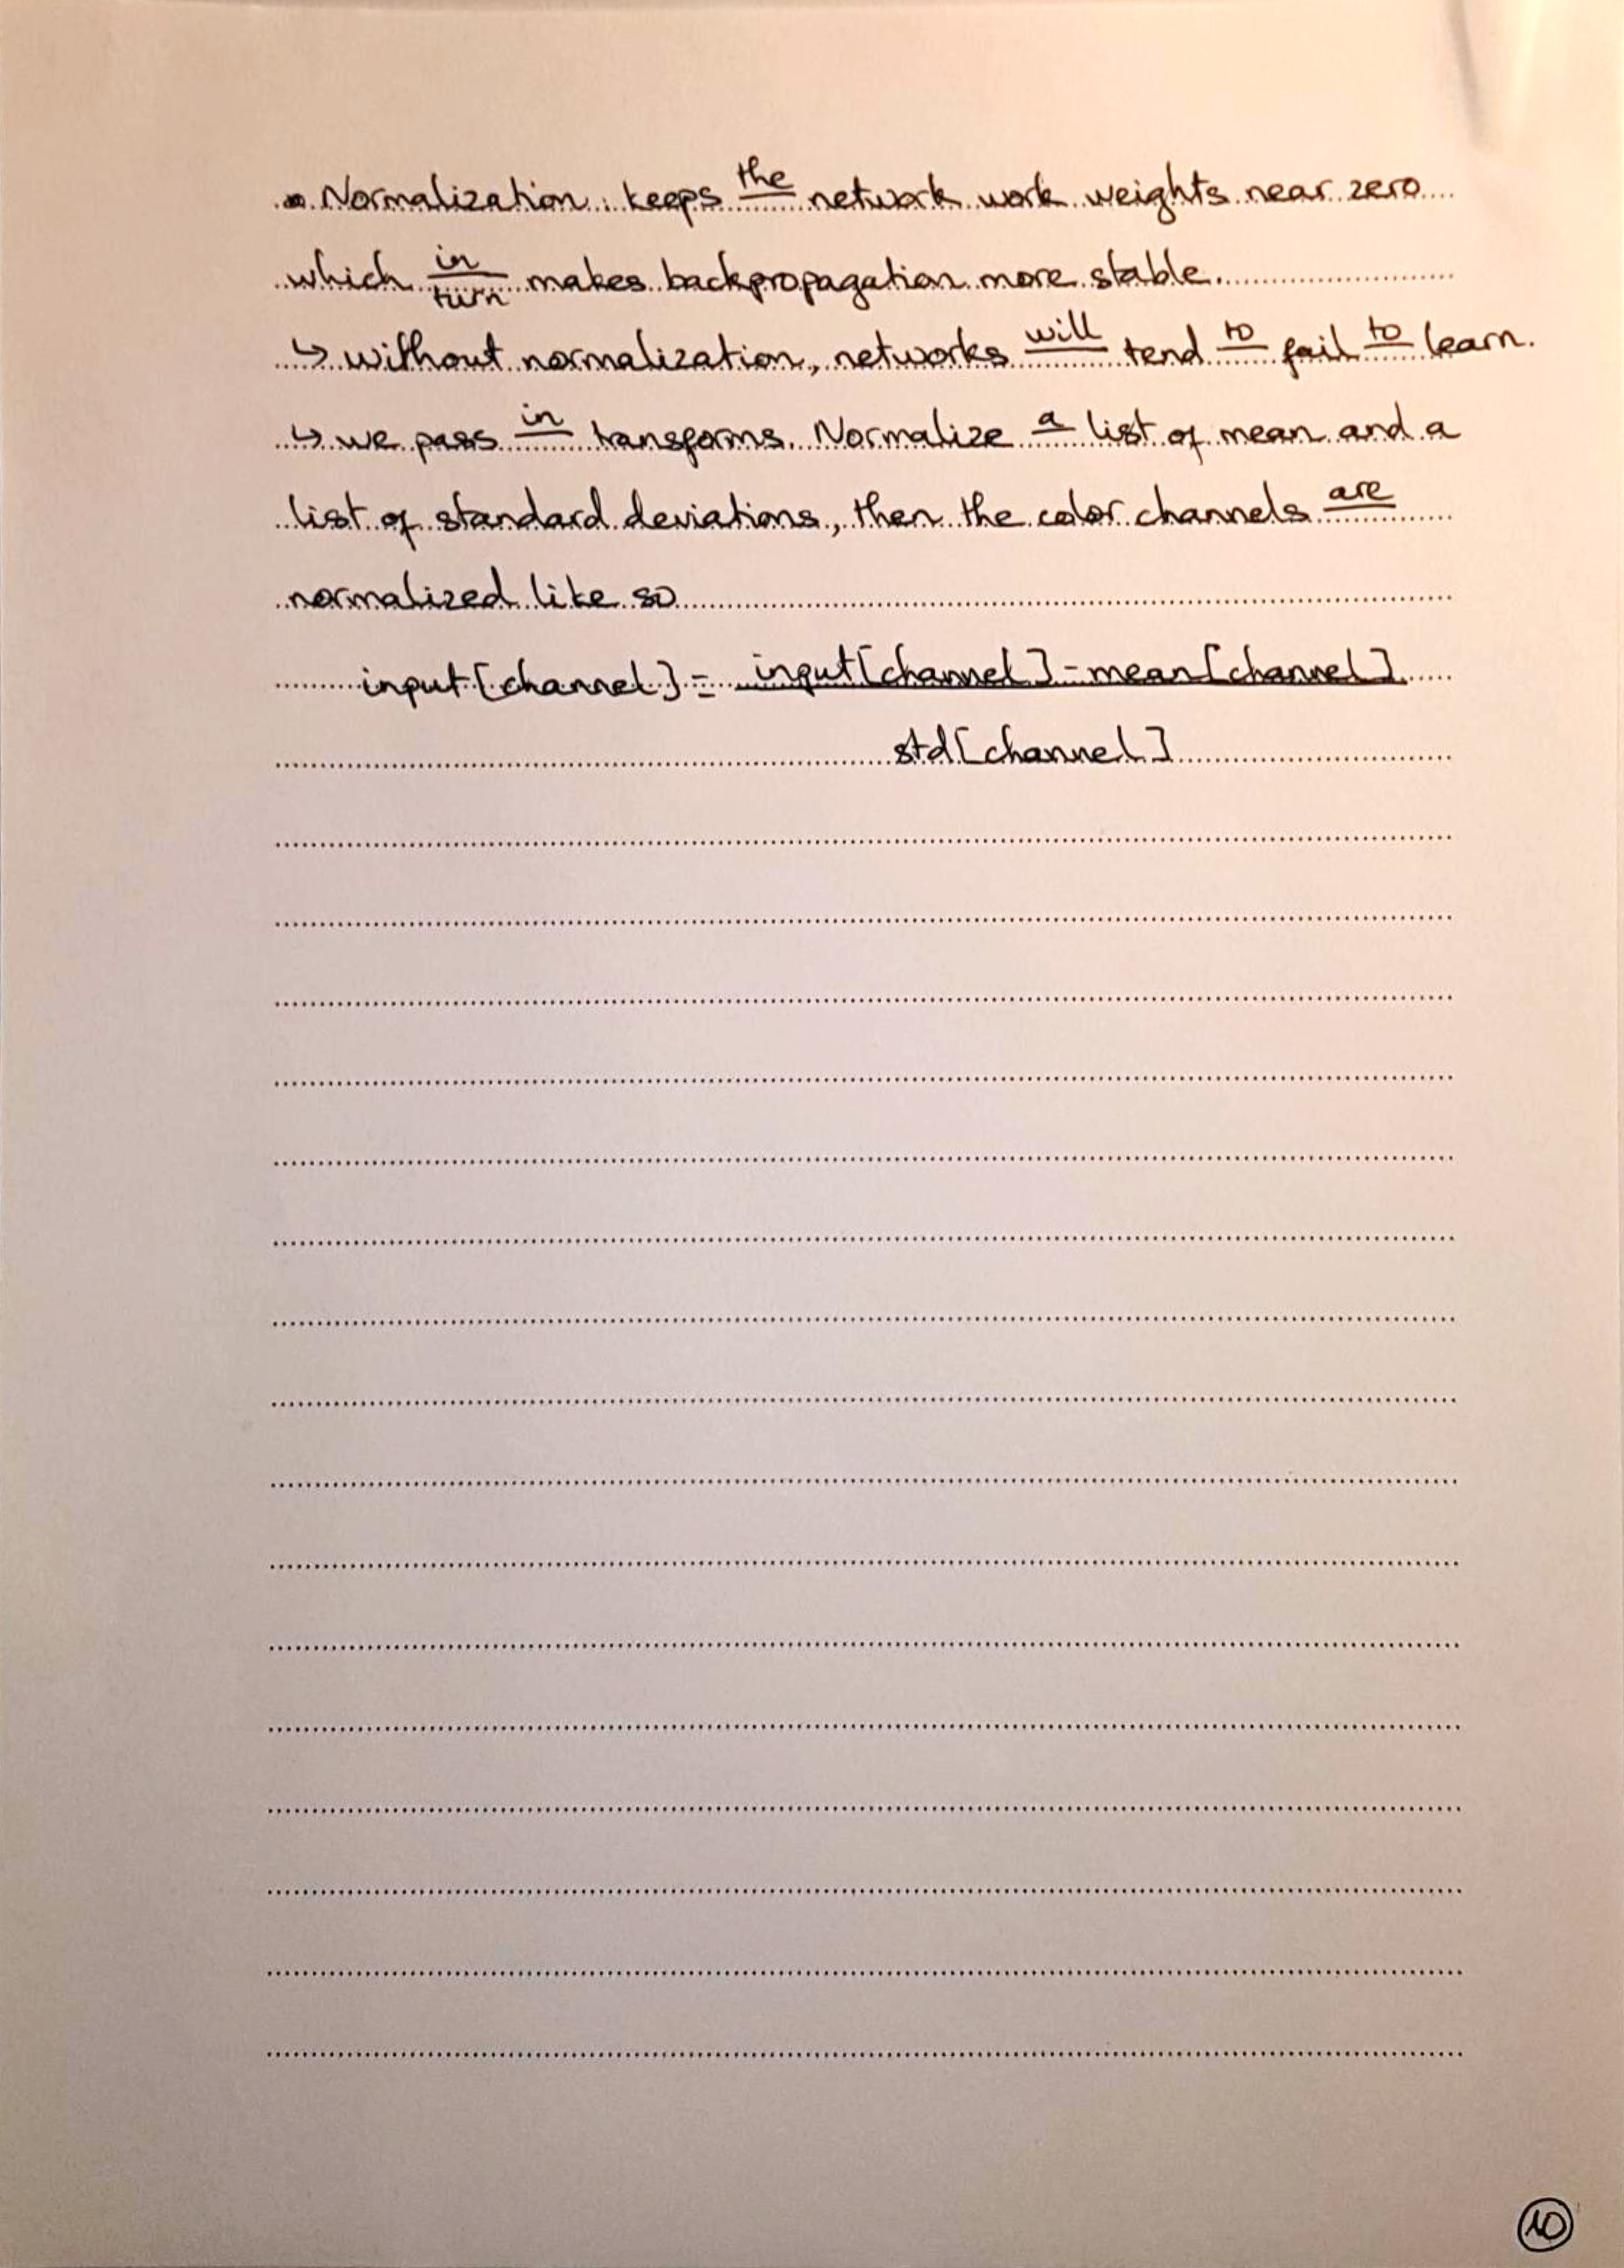 • Normalization keeps the network work weights near zero
which in turn makes backpropagation more stable.
↳ without normalization, networks will tend to fail to learn.
↳ we pass in transforms. Normalize a list of mean and a
list of standard deviations, then the color channels are
normalized like so
input[channel] = input[channel] - mean[channel]
std[channel]
10